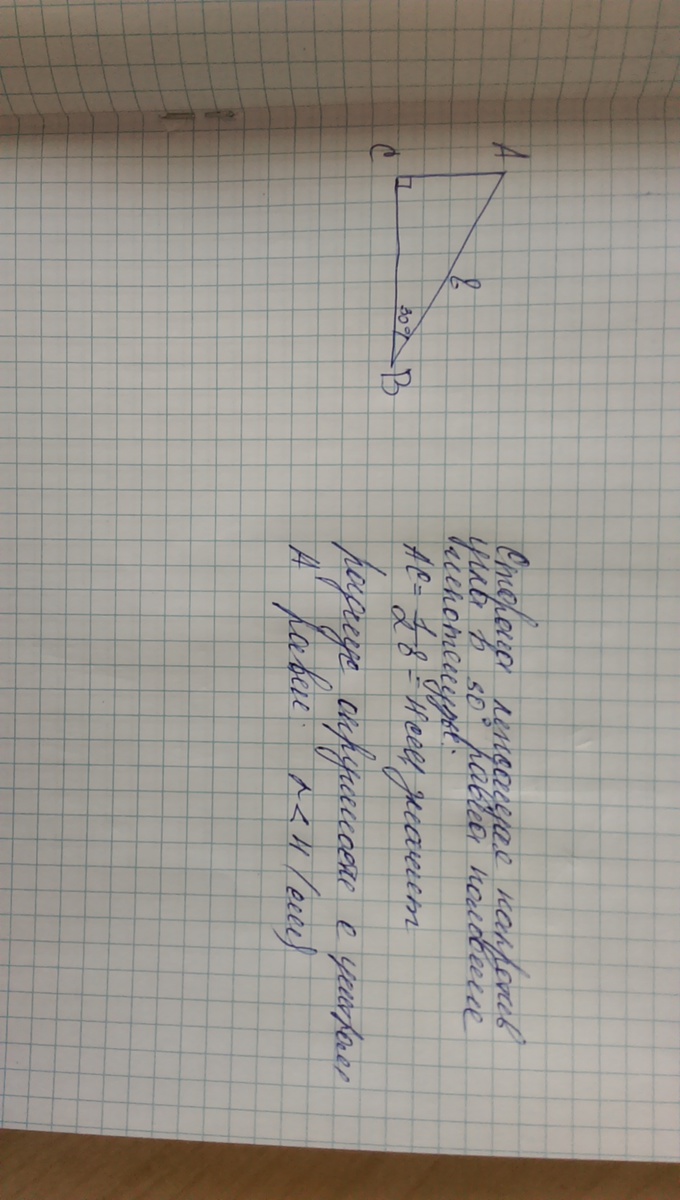 A
C
8
30°
B
Сторона лежащая напротив
угла в 30° равна половине
гипотенузе.
AC = 1/2 8 = 4 см, значит
радиус окружности с центром
A равен: r < 4 (см)